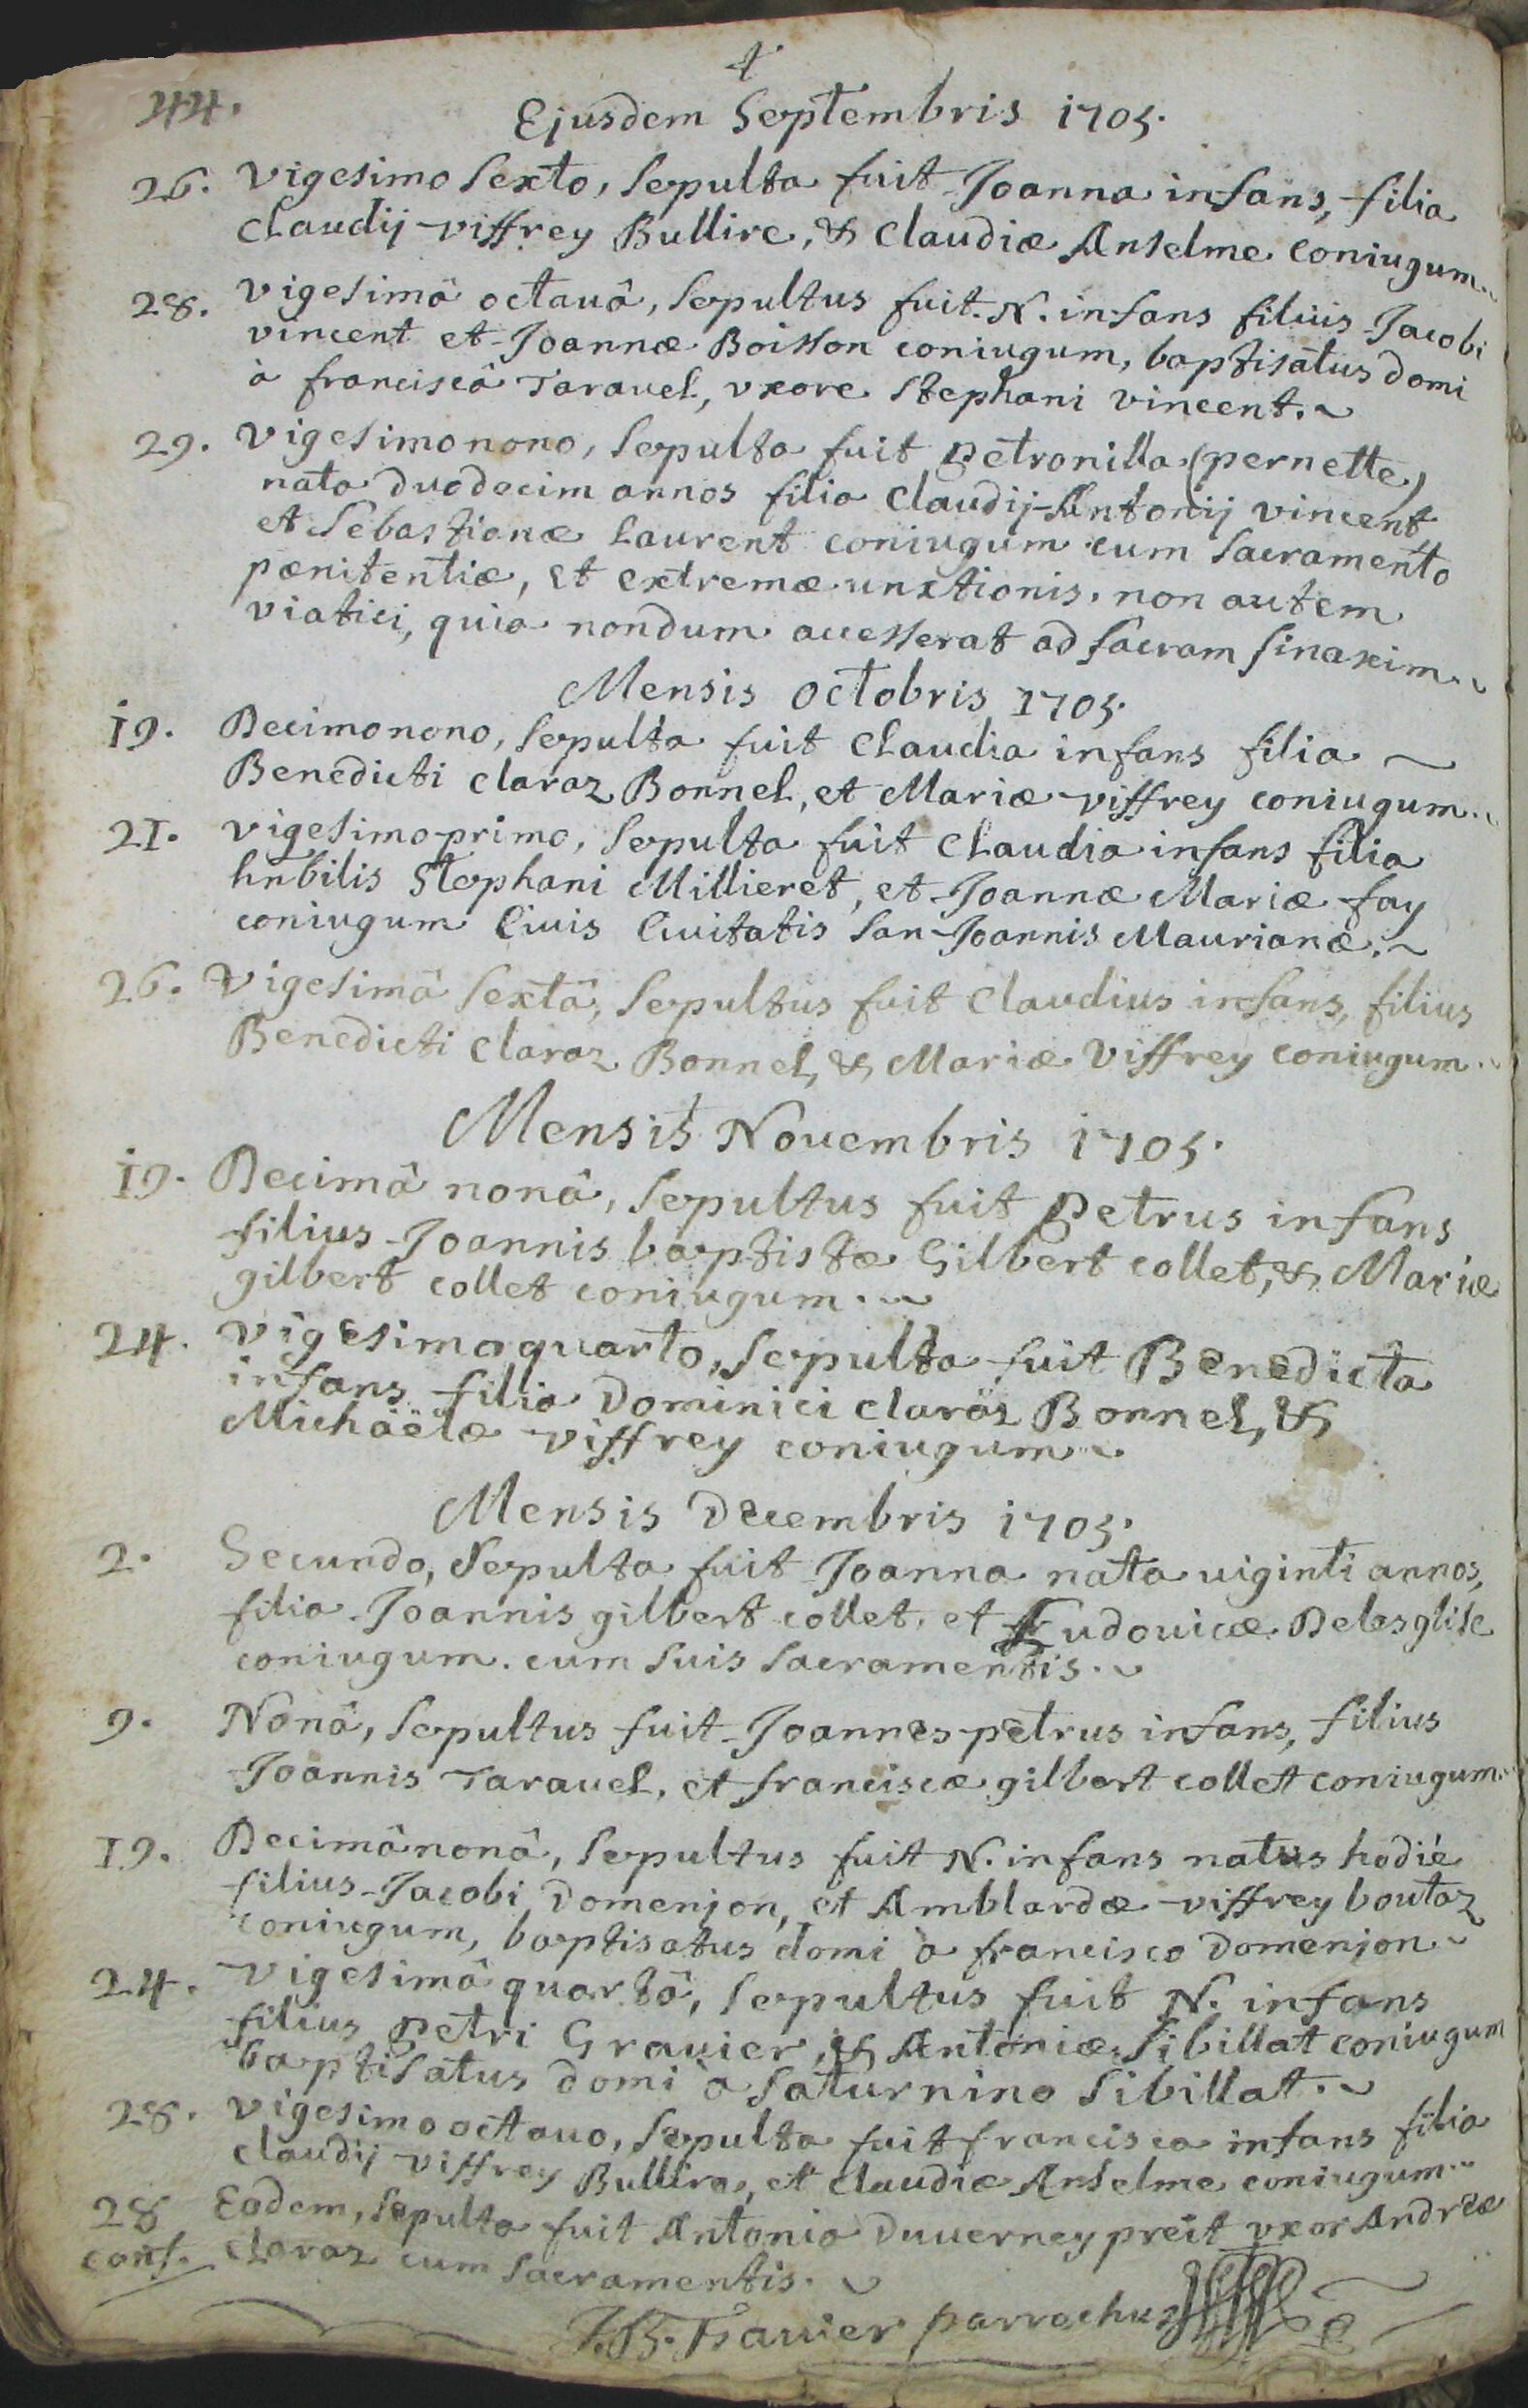 44.
Ejusdem Septembris 1705.
26. vigesimo sexto, sepulta fuit Joanna infans, filia
Claudij viffrey Bullire, & Claudiæ Anselme coniugum.
28. vigesimâ octauâ, sepultus fuit N. infans filius Jacobi
vincent et Joannæ Boisson coniugum, baptisatus domi
à franciscâ Tarauel, vxore Stephani vincent.
29. vigesimonono, sepulta fuit Petronilla (pernette)
nata duodecim annos filia Claudij-Antonij vincent
et Sebastianæ Laurent coniugum cum sacramento
pænitentiæ, et extremæ unctionis. non autem
viatici, quia nondum accesserat ad sacram sinaxim.
Mensis octobris 1705.
19. Decimonono, sepulta fuit Claudia infans filia
Benedicti Claraz Bonnel, et Mariæ viffrey coniugum.
21. vigesimoprimo, sepulta fuit Claudia infans filia
hnbilis Stephani Millieret, et Joannæ Mariæ fay
coniugum Ciuis Ciuitatis San Joannis Maurianæ.
26. vigesimâ sextâ, sepultus fuit Claudius infans, filius
Benedicti Claraz Bonnel, & Mariæ viffrey coniugum.
Mensis Nouembris 1705.
19. Decimâ nonâ, sepultus fuit Petrus infans
filius Joannis baptistæ Gilbert collet, & Mariæ
gilbert collet coniugum.
24. vigesimoquarto, sepulta fuit Benedicta
infans filia Dominici Claraz Bonnel, &
Michäelæ viffrey coniugum.
Mensis Decembris 1705.
2. Secundo, sepulta fuit Joanna nata uiginti annos,
filia Joannis gilbert collet, et Ludouicæ Delesglise
coniugum. cum suis sacramentis.
9. Nonâ, sepultus fuit Joannes-petrus infans, filius
Joannis Tarauel, et franciscæ gilbert collet coniugum.
19. Decimânonâ, sepultus fuit N. infans natus hodiè
filius Jacobi Domenjon, et Amblardæ viffrey boutaz
coniugum, baptisatus domi a francisco Domenjon
24. vigesimâ quartâ, sepultus fuit N. infans
filius Petri Grauier, & Antoniæ Sibillat coniugum
baptisatus domi à Saturnino Sibillat.
28. vigesimo octauo, sepulta fuit francisca infans filia
Claudij viffrey Bullire, et Claudiæ Anselme coniugum
28 Eodem, sepulta fuit Antonia Duuerney preit vxor Andreæ
conf. Claraz cum sacramentis.
J.B. parrochus